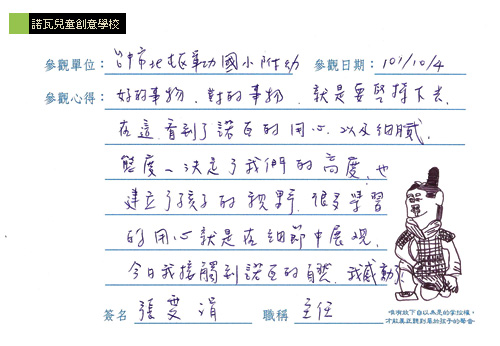 諾瓦兒童創意學校
參觀單位：台中市北屯軍功國小附幼 參觀日期：101/10/4
參觀心得：好的事物，對的事物，就是要堅持下去，
在這看到了諾瓦的用心以及細膩，
態度，決定了我們的高度，也
建立了孩子的視野，很多學習
的用心就是在細節中展現，
今日我接觸到諾瓦的自然，我感動！
簽名 張雯涓 職稱 主任
唯有放下自以為是的掌控權，
才能真正聽到屬於孩子的聲音